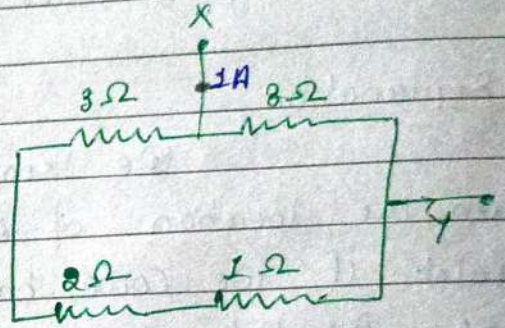 X
1A
3Ω 3Ω
Y
2Ω 1Ω